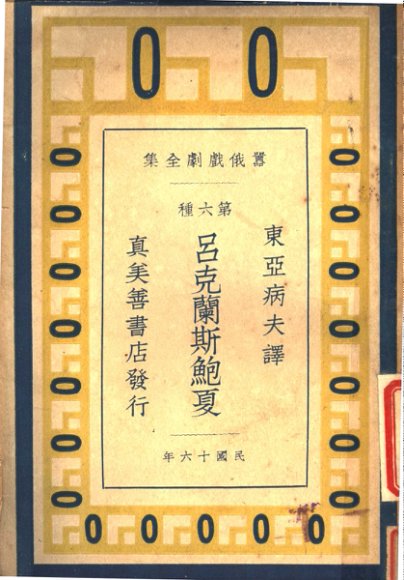 囂俄戲劇全集
第六種
東亞病夫譯
呂克蘭斯鮑夏
真美善書店發行
民國十六年